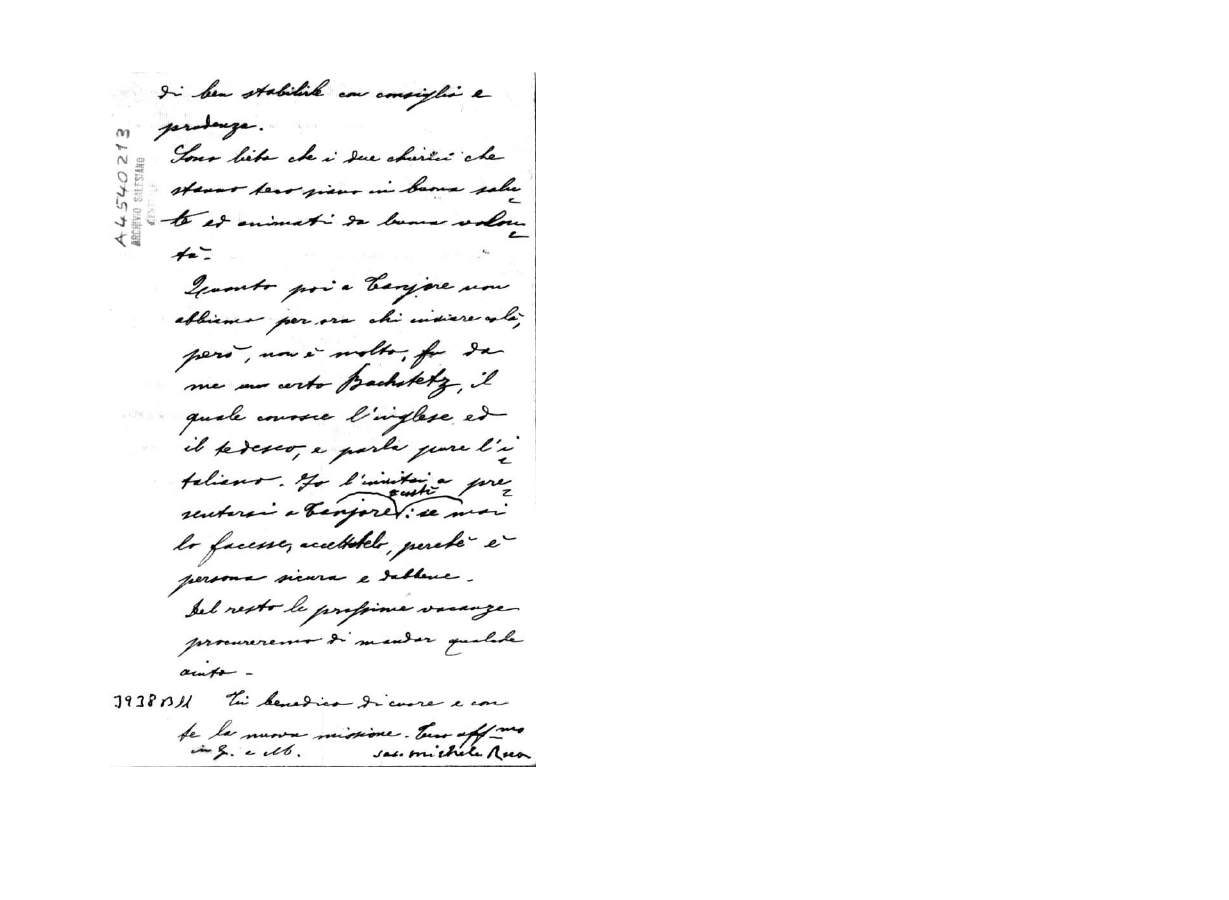 di ben stabilirle con consiglio e
prudenza.
Sono lieto che i due chierici che
stanno teco siano in buona salu
te ed animati da buona volon
tà.
Quanto poi a Tanjore non
abbiamo per ora chi inviare colà,
però, non è molto, fu da
me un certo Bachstetz, il
quale conosce l'inglese ed
il tedesco, e parla pure l'i
taliano. Io l'invitai a pre
sentarsi a Tanjore costì: se mai
lo facesse, accettatelo, perchè è
persona sicura e dabbene.
Del resto le prossime vacanze
procureremo di mandar qualche
aiuto -
Ti benedico di cuore e con
te la nuova missione. Tuo aff.mo
in G. e M. Sac. Michele Rua
3938 B11
A4540213
ARCHIVIO SALESIANO
CENTRALE